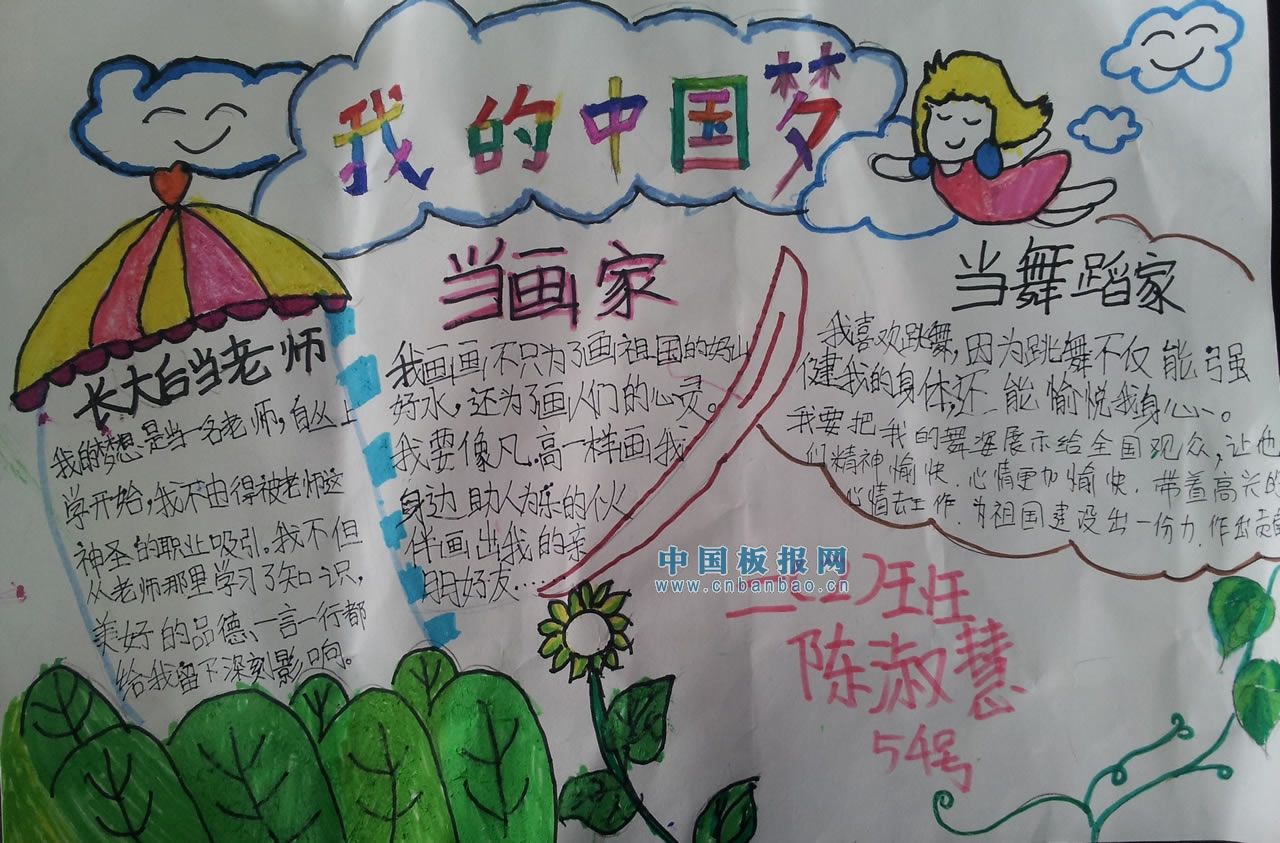 我的中国梦
长大后当老师
我的梦想是当一名老师，自从上
学开始，我不由得被老师这
神圣的职业吸引。我不但
从老师那里学习了知识，
美好的品德、一言一行都
给我留下深刻影响。
当画家
我画画不只为了画祖国的好山
好水，还为了画人们的心灵。
我要像凡.高一样画我
身边助人为乐的伙
伴画出我的亲
朋好友……
当舞蹈家
我喜欢跳舞，因为跳舞不仅能强
健我的身体，还能愉悦我身心。
我要把我的舞姿展示给全国观众，让他
们精神愉快．心情更加愉快．带着高兴的
心情去工作．为祖国建设出一份力．作出贡献
中国板报网
www.cnbanbao.cn
班
陈淑慧
54号